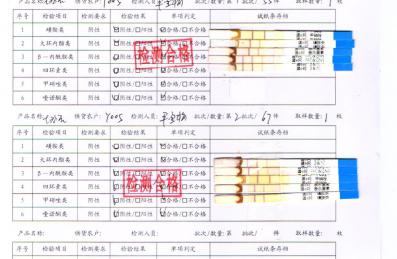 产品名称: 供货农户: Y005 检测人员: 批次/数量: 第1批次/55件 取样数量: 1 枚
序号 检验项目 检测要求 检验结果 单项判定 试纸条存档
1 磺胺类 阴性 ☑阴性/□阳性 ☑合格/□不合格
2 大环内酯类 阴性 ☑阴性/□阳性 ☑合格/□不合格
3 β-内酰胺类 阴性 ☑阴性/□阳性 ☑合格/□不合格
4 四环素类 阴性 ☑阴性/□阳性 ☑合格/□不合格
5 甲硝唑类 阴性 ☑阴性/□阳性 ☑合格/□不合格
6 喹诺酮类 阴性 ☑阴性/□阳性 ☑合格/□不合格
检测合格
产品名称: 供货农户: Y005 检测人员: 批次/数量: 第2批次/67件 取样数量: 1 枚
序号 检验项目 检测要求 检验结果 单项判定 试纸条存档
1 磺胺类 阴性 ☑阴性/□阳性 ☑合格/□不合格
2 大环内酯类 阴性 ☑阴性/□阳性 ☑合格/□不合格
3 β-内酰胺类 阴性 ☑阴性/□阳性 ☑合格/□不合格
4 四环素类 阴性 ☑阴性/□阳性 ☑合格/□不合格
5 甲硝唑类 阴性 ☑阴性/□阳性 ☑合格/□不合格
6 喹诺酮类 阴性 ☑阴性/□阳性 ☑合格/□不合格
检测合格
产品名称: 供货农户: 检测人员: 批次/数量: 第 批次/ 件 取样数量: 枚
序号 检验项目 检测要求 检验结果 单项判定 试纸条存档